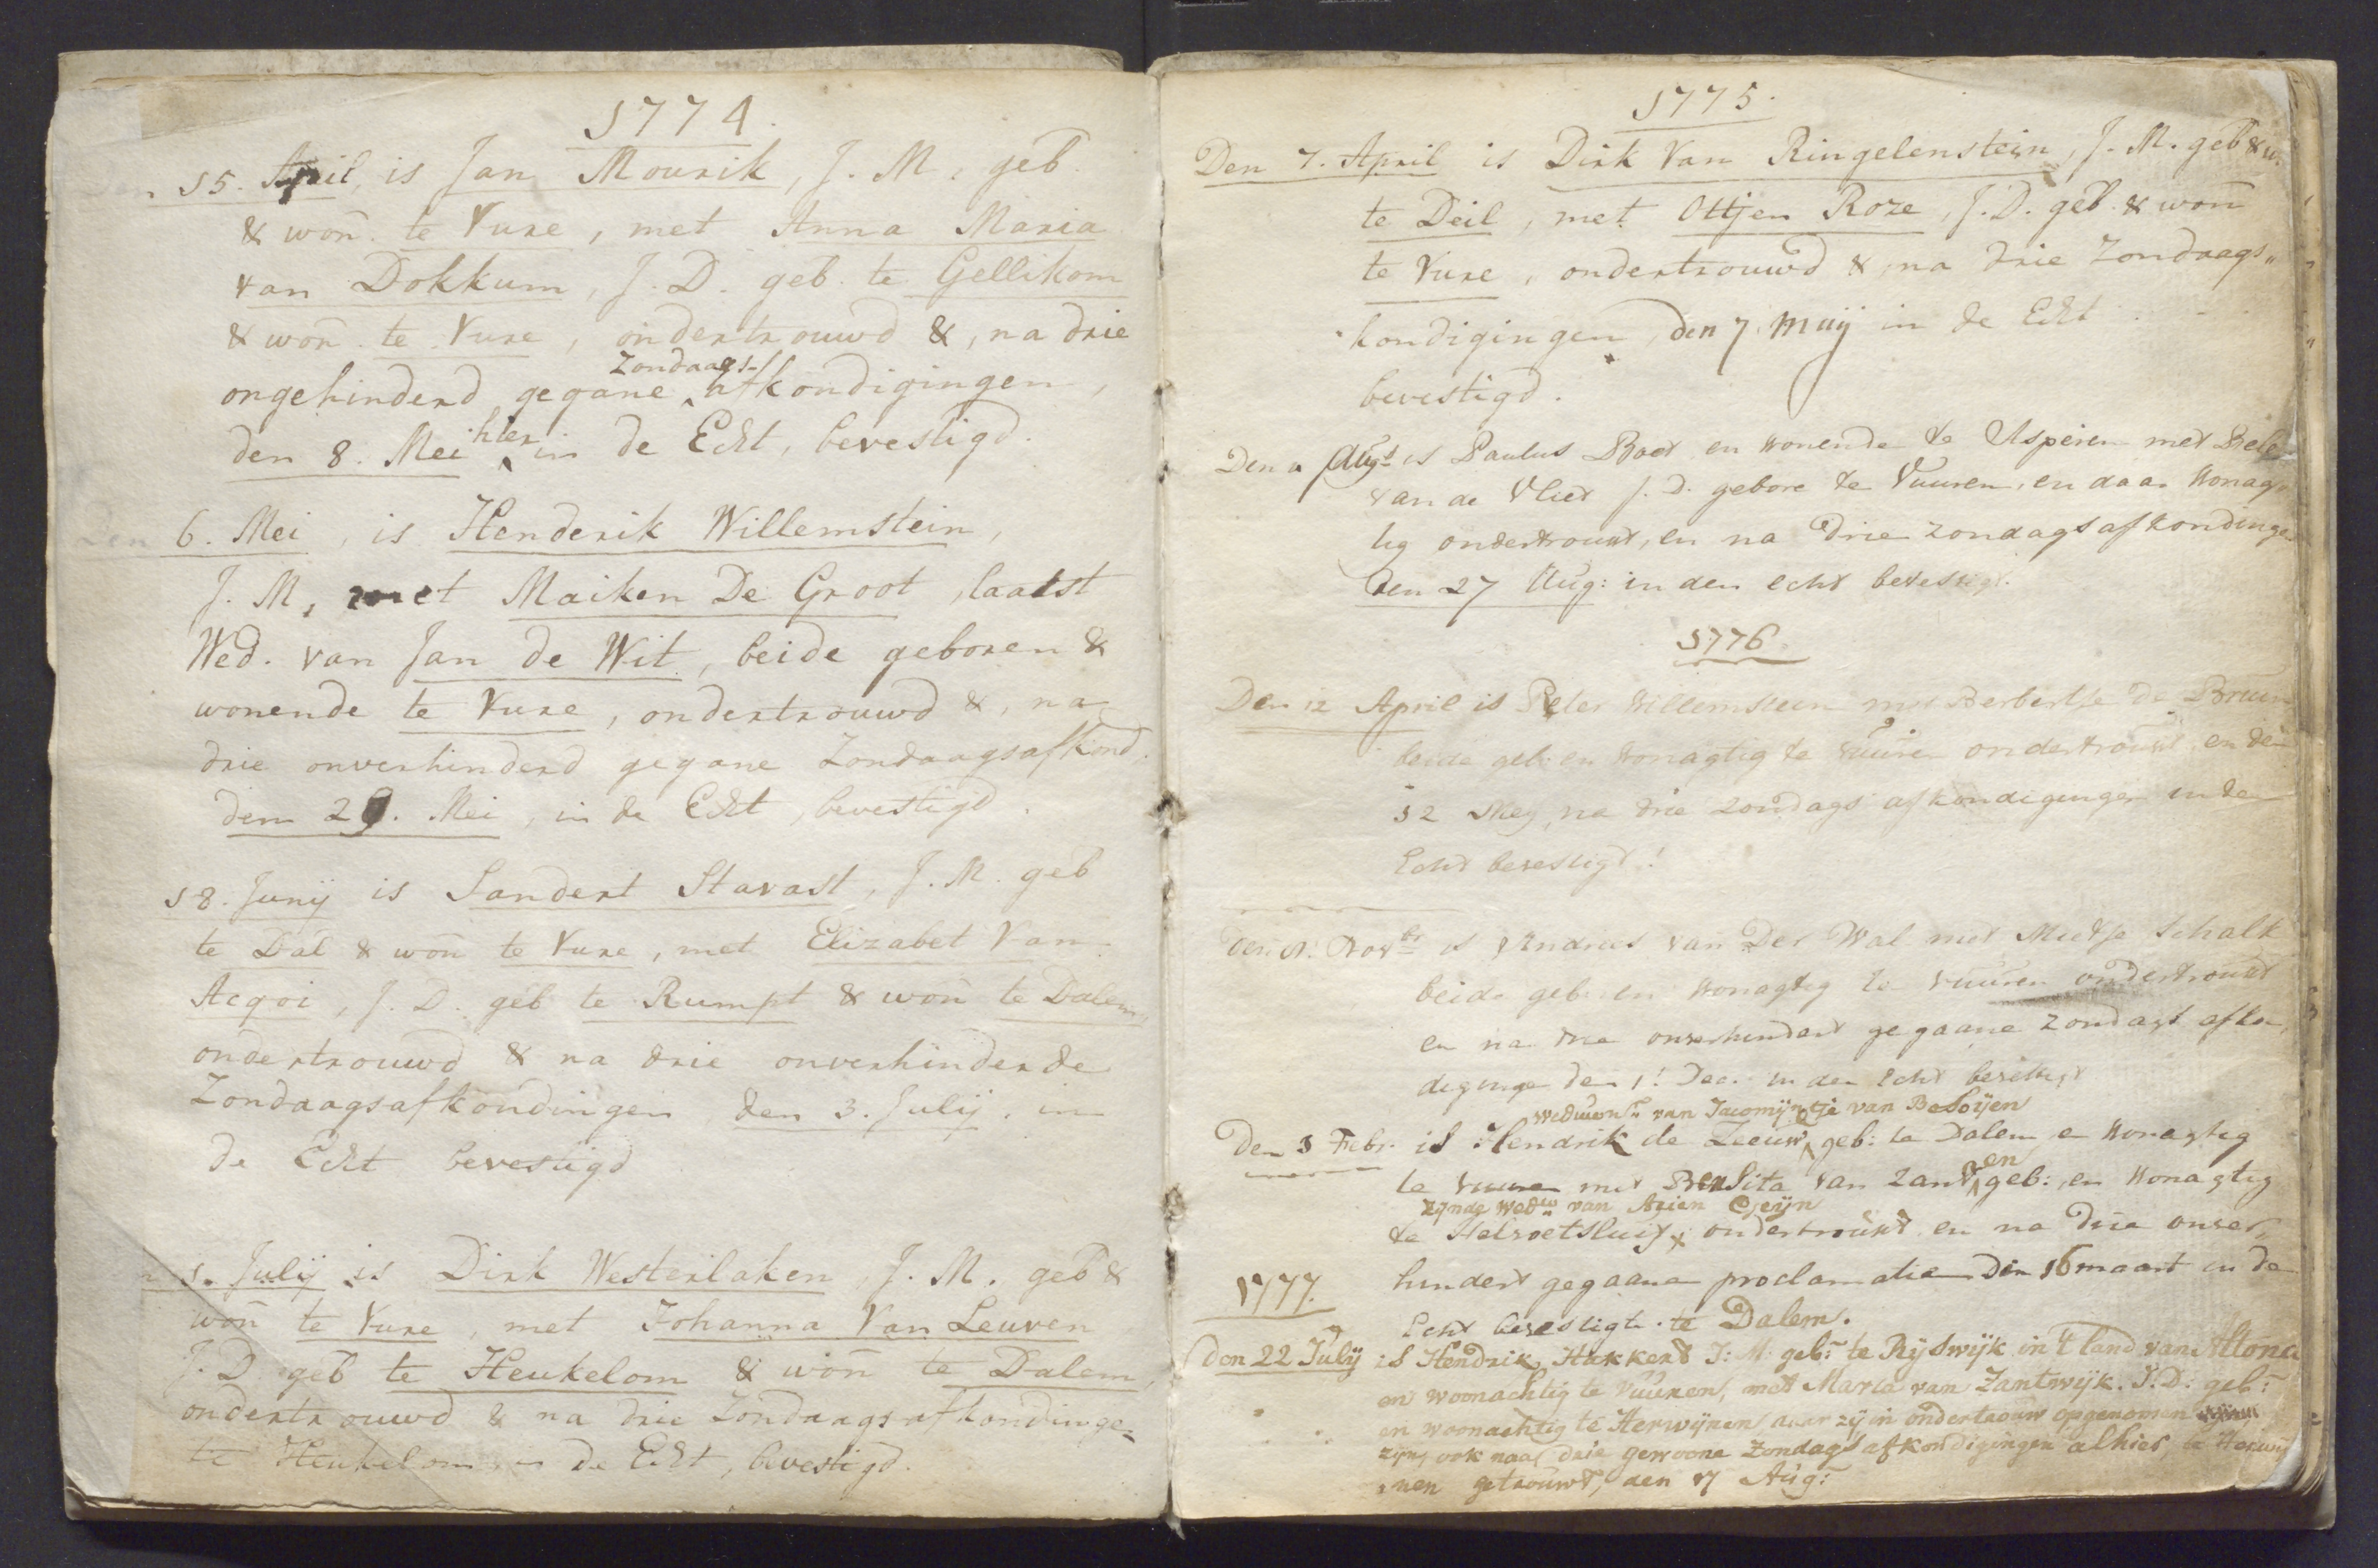 1774.
Den 15. April, is Jan Mourik, J. M. geb.
& won̄. te Vure, met Anna Maria
van Dokkum, J. D. geb. te Gellikom
& won̄. te Vure, ondertrouwd &, na drie
Zondaags-
ongehinderd gegane ^ afkondigingen,
hier
den 8. Mei ^ in de Echt, bevestigd.
Den 6. Mei, is Henderik Willemstein,
J. M, met Maiken De Groot, laatst
Wed. van Jan de Wit, beide geboren &
wonende te Vure, ondertrouwd &, na
drie onverhinderd gegane Zondaagsafkond.
den 29. Mei, in de Echt, bevestigd.
18. Junij is Sandert Stavast, J. M. geb
te Dal & won̄ te Vure, met Elizabet Van
Acqoi, J. D. geb te Rumpt & won̄ te Dalem,
ondertrouwd & na drie onverhinderde
Zondaagsafkondingen den 3. Julij. in
de Echt bevestigd
1. Julij is Dirk Westerlaken, J. M. geb &
won̄ te Vure, met Johanna Van Leuven
J. D. geb te Heukelom & won̄ te Dalem,
ondertrouwd & na drie Zondaags afkondinge-
te Heukelom in de Echt, bevestigd.
1775.
Den 7. April is Dirk Van Ringelenstein, J. M. geb & w.
te Deil, met Ottjen Roze, J. D. geb. & won̄
te Vure, ondertrouwd &, na drie Zondaags„
kondigingen, den 7. Maij in de Echt
bevestigd.
Den Augt is Paulus Boot en wonende te Asperen met
van de Vliet J. D. gebore te Vuuren, en daar Wonag
tig ondertrouwt, en na drie zondagsafkondinge
den 27 Aug: in den echt bevestigt.
1776.
Den 12 April is Peter Willemstein met Berbertje de Bruin
beide geb: en Wonagtig te Vuuren ondertrouwt en den
12 Mey, na drie Zondags afkondigingen in den
Echt bevestigt!
Den Novbr is Andries van Der Wal met Mietje Schalk
beide geb: en Wonagtig te Vuuren ondertrouwt
en na drie onverhindert gegaane Zondags afkon
diginge den 1! Dec. in den Echt bevestigt
weduwnr van Jacomijntje van Beloijen
Den 3 Febr. is Hendrik de Zeeuw ^ geb: te Dalem en Wonagtig
en
te Vuuren met van Zant ^ geb: en Wonagtig
zijnde wedw van Arien Gerijn
te Helvoetsluis x ondertrouwt en na drie onver„
1777.
hindert gegaane proclamatien Den 16 maart in de
Echt bevestigt. te Dalem.
den 22 Julij is Hendrik Hakkert J: M: geb: te Rijswijk in 't land van Altona
en woonachtig te Vuuren, met Maria van Zantwijk. J. D: geb:
en woonachtig te Herwijnen alwaar zij in ondertrouw opgenomen
zijn, ook naa drie gewoone Zondags afkondigingen alhier, te Herwij
nen getrouwt, den 17 Aug: